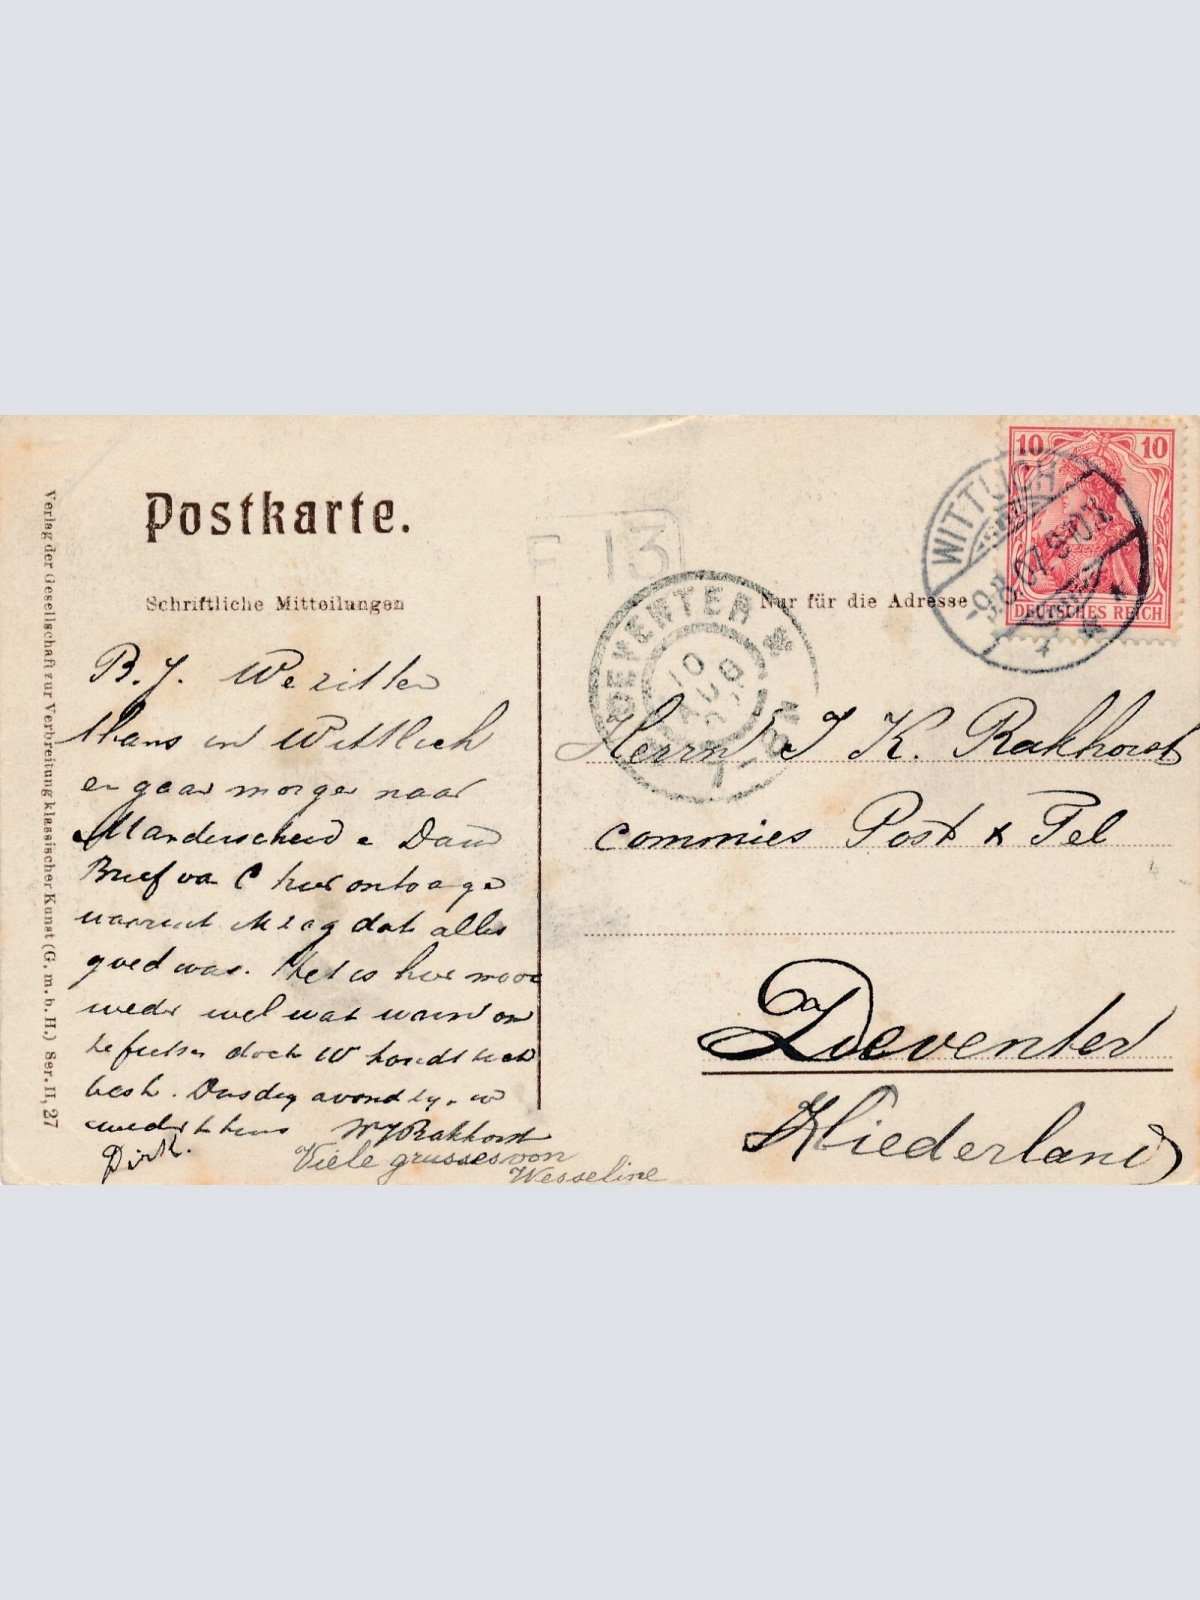 Postkarte.
Schriftliche Mitteilungen
Nur für die Adresse
10 10
DEUTSCHES REICH
WITTLICH
-9.8.07.9-10V.
E 13
DEVENTER
10 AUG
7-8 N
Verlag der Gesellschaft zur Verbreitung klassischer Kunst (G. m. b. H.) Ser. II, 27
B. J. We zitten
thans in Wittlich
en gaan morgen naar
Manderscheid
Brief van C hier
waaruit ik zag dat alles
goed was. Het is hier mooi
weder wel wat warm om
te fietsen doch W houdt zich
best. Dinsdag avond
weder thuis WJRakhorst
Dirk.
Viele grusses von
Wesseline
Herrn J K. Rakhorst
commies Post & Tel
Deventer
Niederland